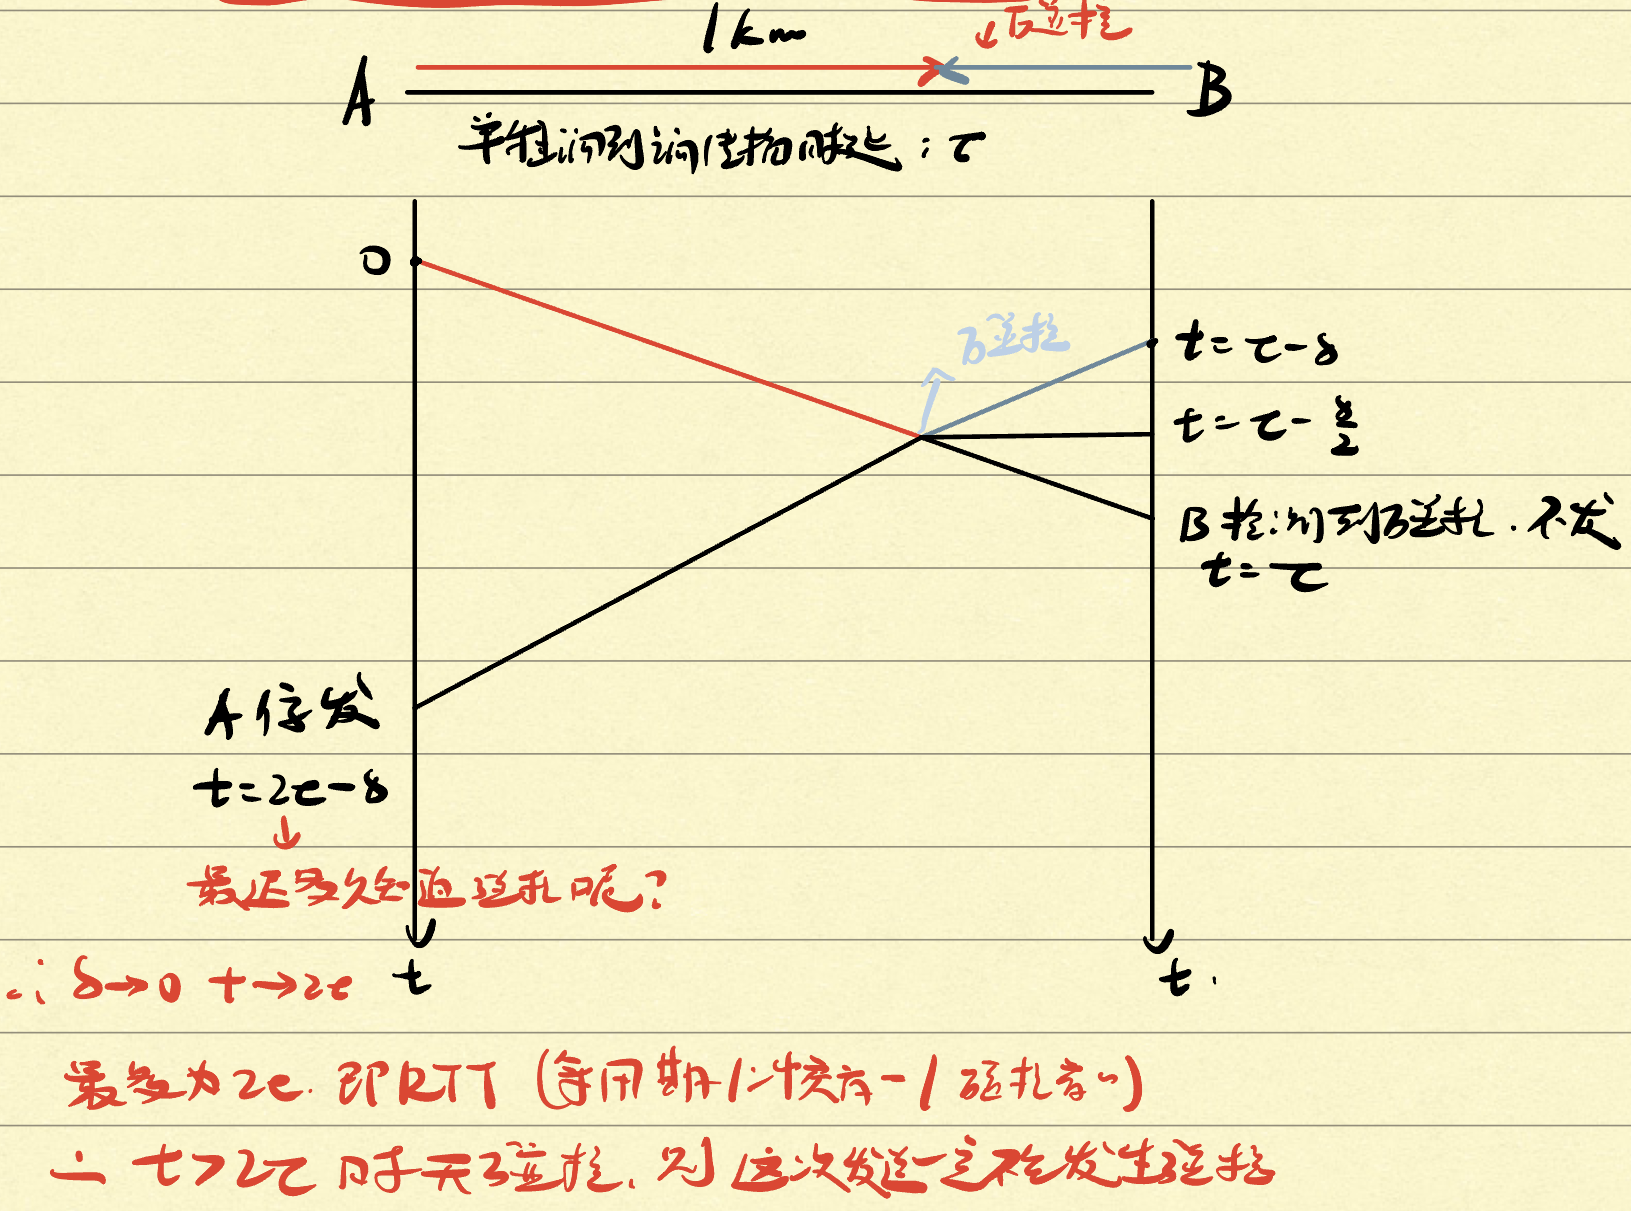 1km
↓碰撞
A
B
单程端到端传播时延：τ
0
碰撞
t=τ-δ
t=τ-δ/2
B检测到碰撞.不发
t=τ
A停发
t=2τ-δ
↓
最迟多久知道碰撞呢？
∴ δ→0 t→2τ
t
t.
最多为2τ.即RTT
∴ t>2τ时无碰撞.则这次发送一定不会发生碰撞